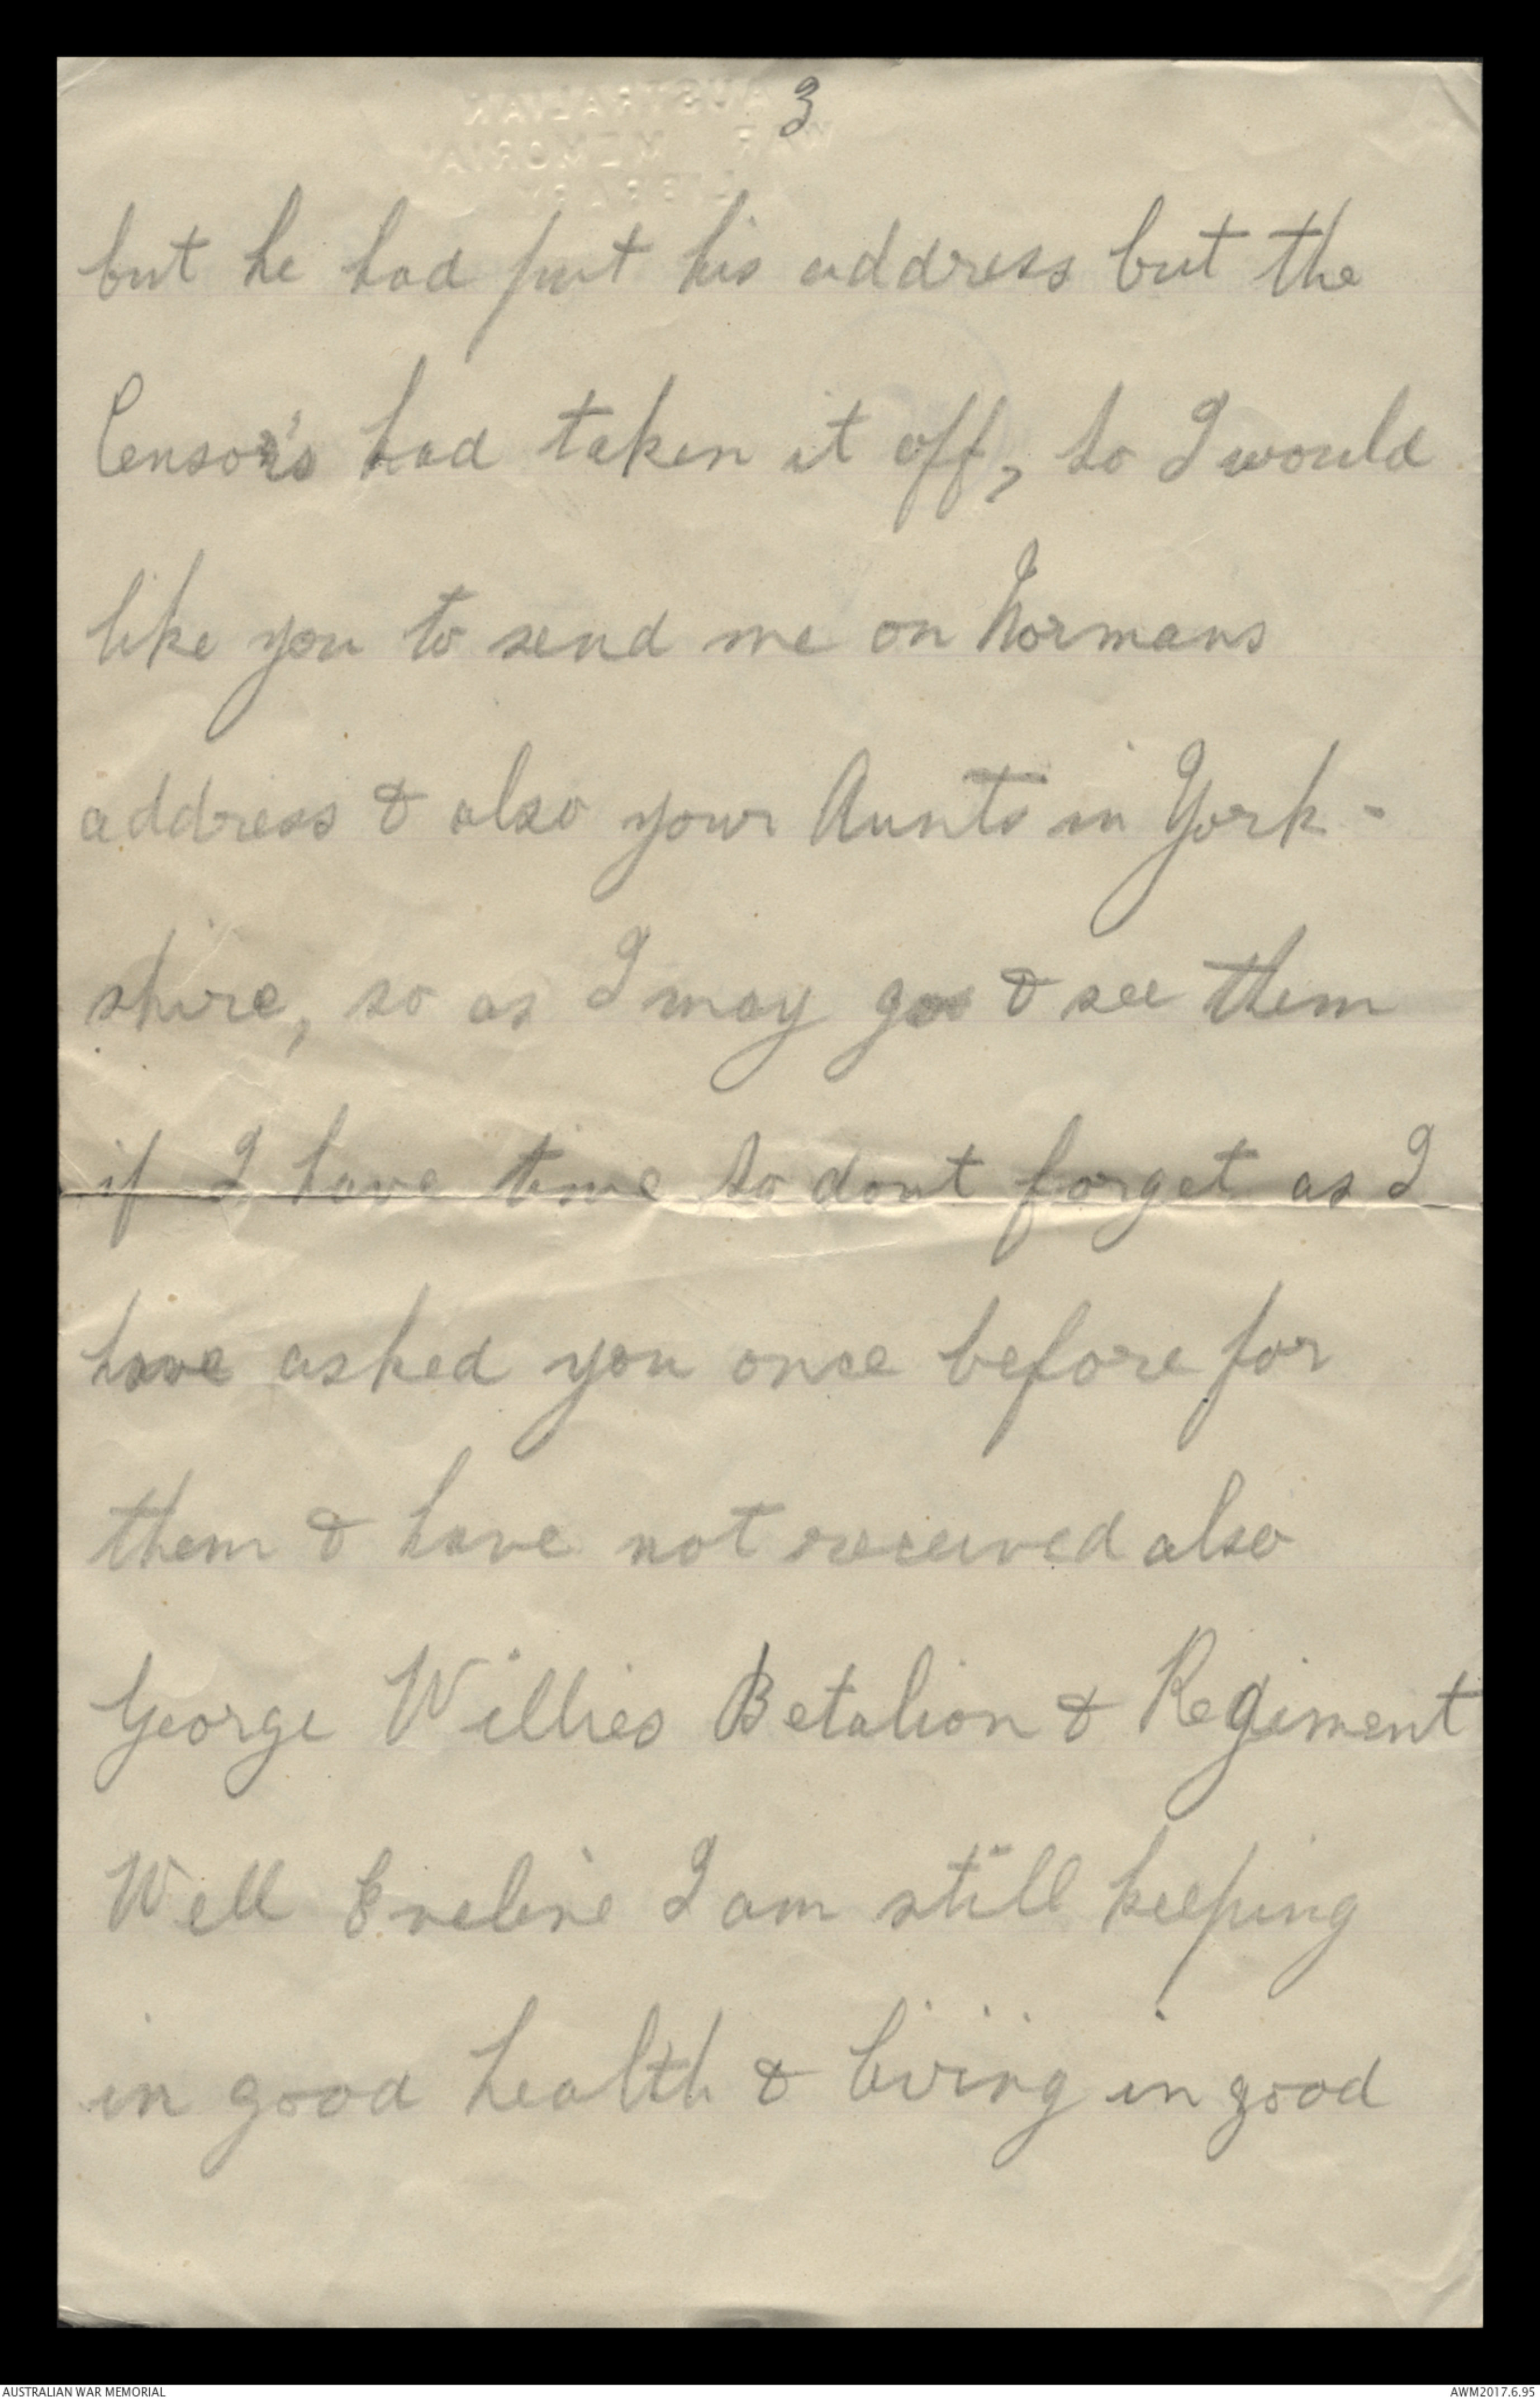 3
AUSTRALIAN
WAR MEMORIAL
LIBRARY
but he had put his address but the
Censor's had taken it off, so I would
like you to send me on Normans
address & also your Aunts in York-
shire, so as I may go & see them
if I have time so dont forget as I
have asked you once before for
them & have not received also
George Willies Betalion & Regiment
Well Eveline I am still keeping
in good health & living in good
AUSTRALIAN WAR MEMORIAL
AWM2017.6.95